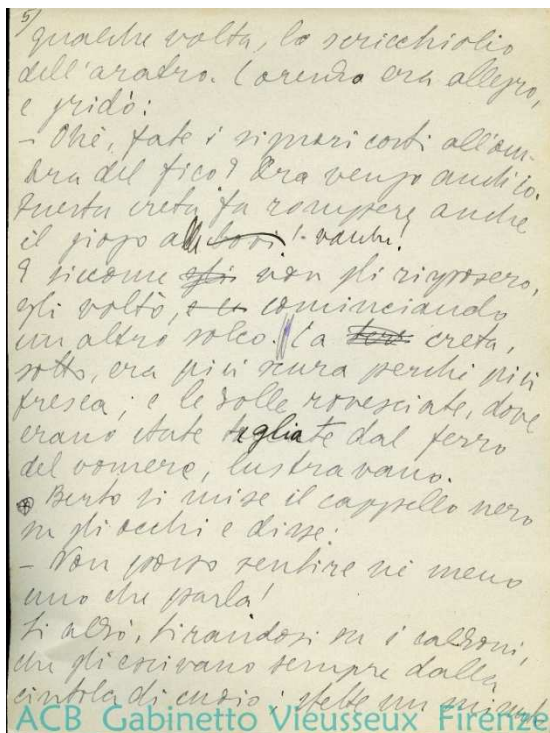 5)
qualche volta, lo scricchiolio
dell'aratro. Lorenzo era allegro,
e gridò:
– Ohè, fate i signori costì all'om-
bra del fico? Ora vengo anch'io.
Questa creta fa rompere anche
il giogo alle vacche!
E siccome non gli risposero,
egli voltò, cominciando
un altro solco. La creta,
sotto, era più scura perché più
fresca; e le zolle rovesciate, dove
erano state tagliate dal ferro
del vomere, lustravano.
Berto si mise il cappello nero
su gli occhi e disse:
– Non posso sentire né meno
uno che parla!
Si alzò, tirandosi su i calzoni,
che gli escivano sempre dalla
cintola di cuoio; stette un minuto
ACB Gabinetto Vieusseux Firenze